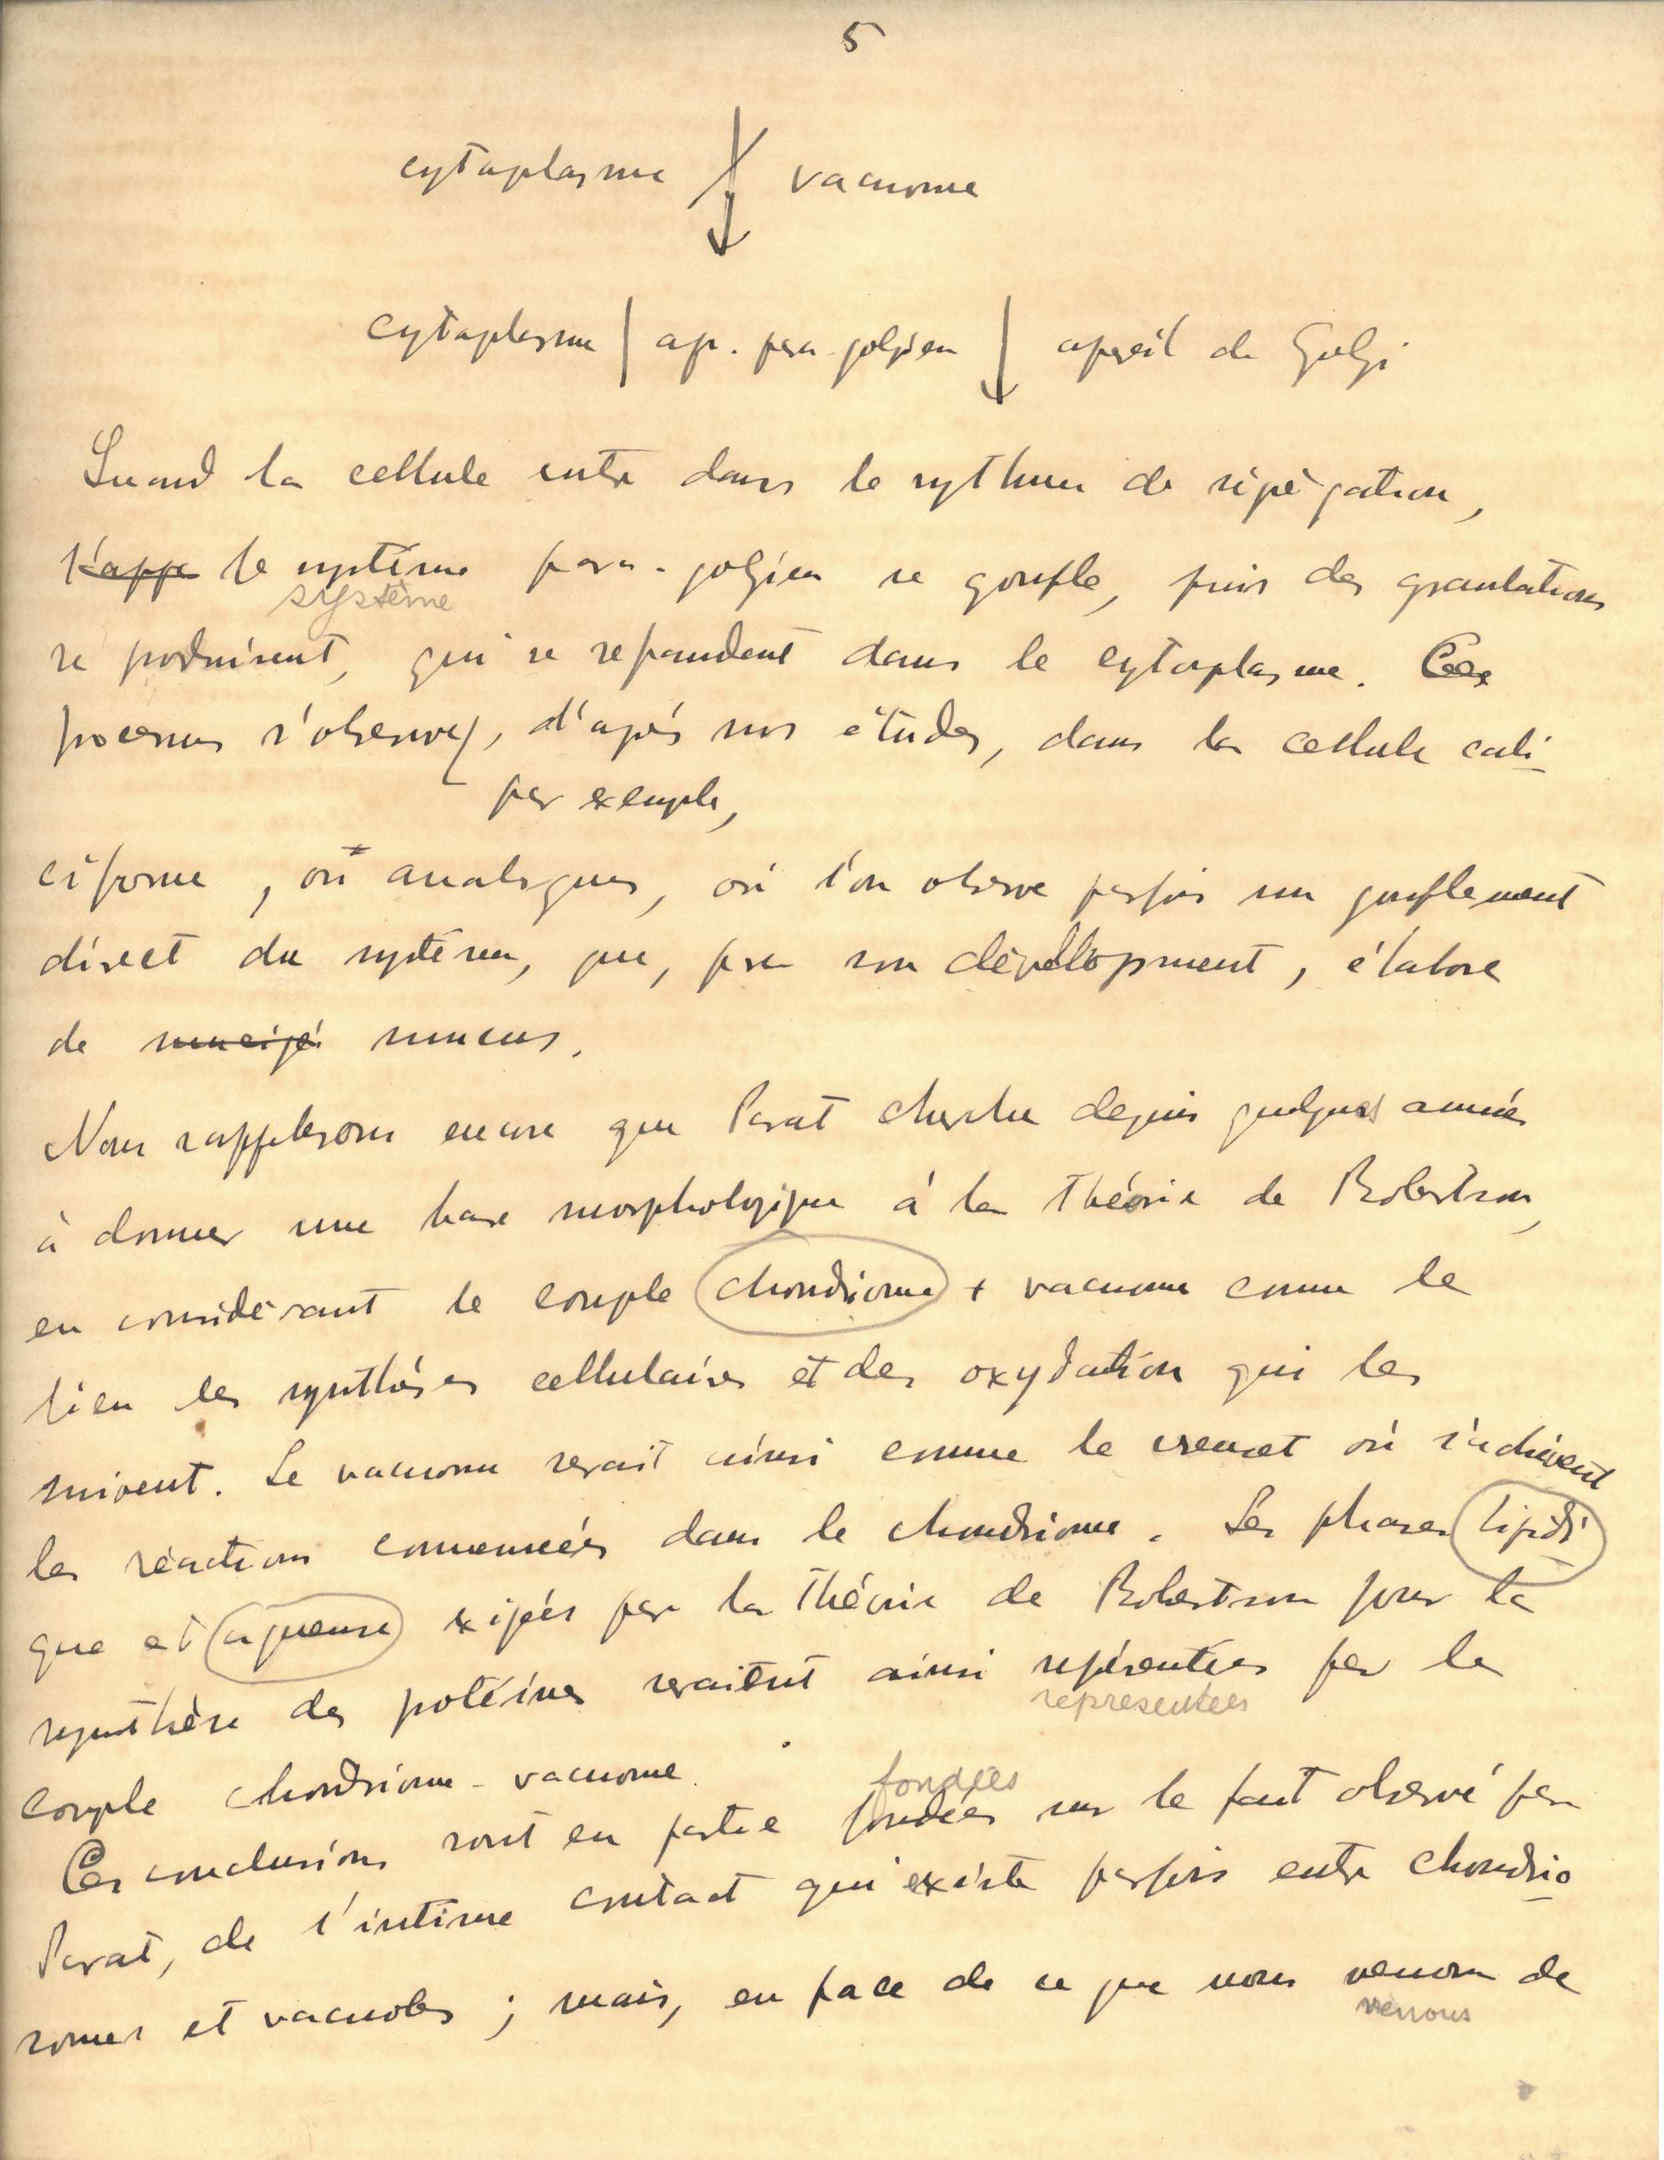 5
cytoplasme vacuome
cytoplasme ap. para-golgien apareil de Golgi
Quand la cellule entre dans le rythme de ségrégation,
l'appa le système para-golgien se gonfle, puis des granulations
système
se produisent, qui se repandent dans le cytoplasme. Ces
processus s'observe, d'après nos études, dans la cellule cali
par exemple,
ciforme, où analogues, où l'on observe parfois un gonflement
direct du système, que, par son développment, élabore
de mucus.
Nous rappelerons encore que Parat cherche depuis quelques années
à donner une base morphologique à la théorie de Robertson,
en considérant le couple chondriome + vacuome comme le
lieu les synthèses cellulaires et des oxydation qui les
suivent. Le vacuome serait ainsi comme le creuset où s'achèvent
les réactions commencées dans le chondriome. Les phases lipidi
que et aqueuse exigées par la théorie de Robertson pour la
synthèse des protéines seraient ainsi représentées par le
representées
couple chondriome-vacuome.
fondées
Ces conclusions sont en partie fondées sur le fait observé par
Parat, de l'intime contact qui existe parfois entre chondrio
somes et vacuoles ; mais, en face de ce que nous venons de
venons